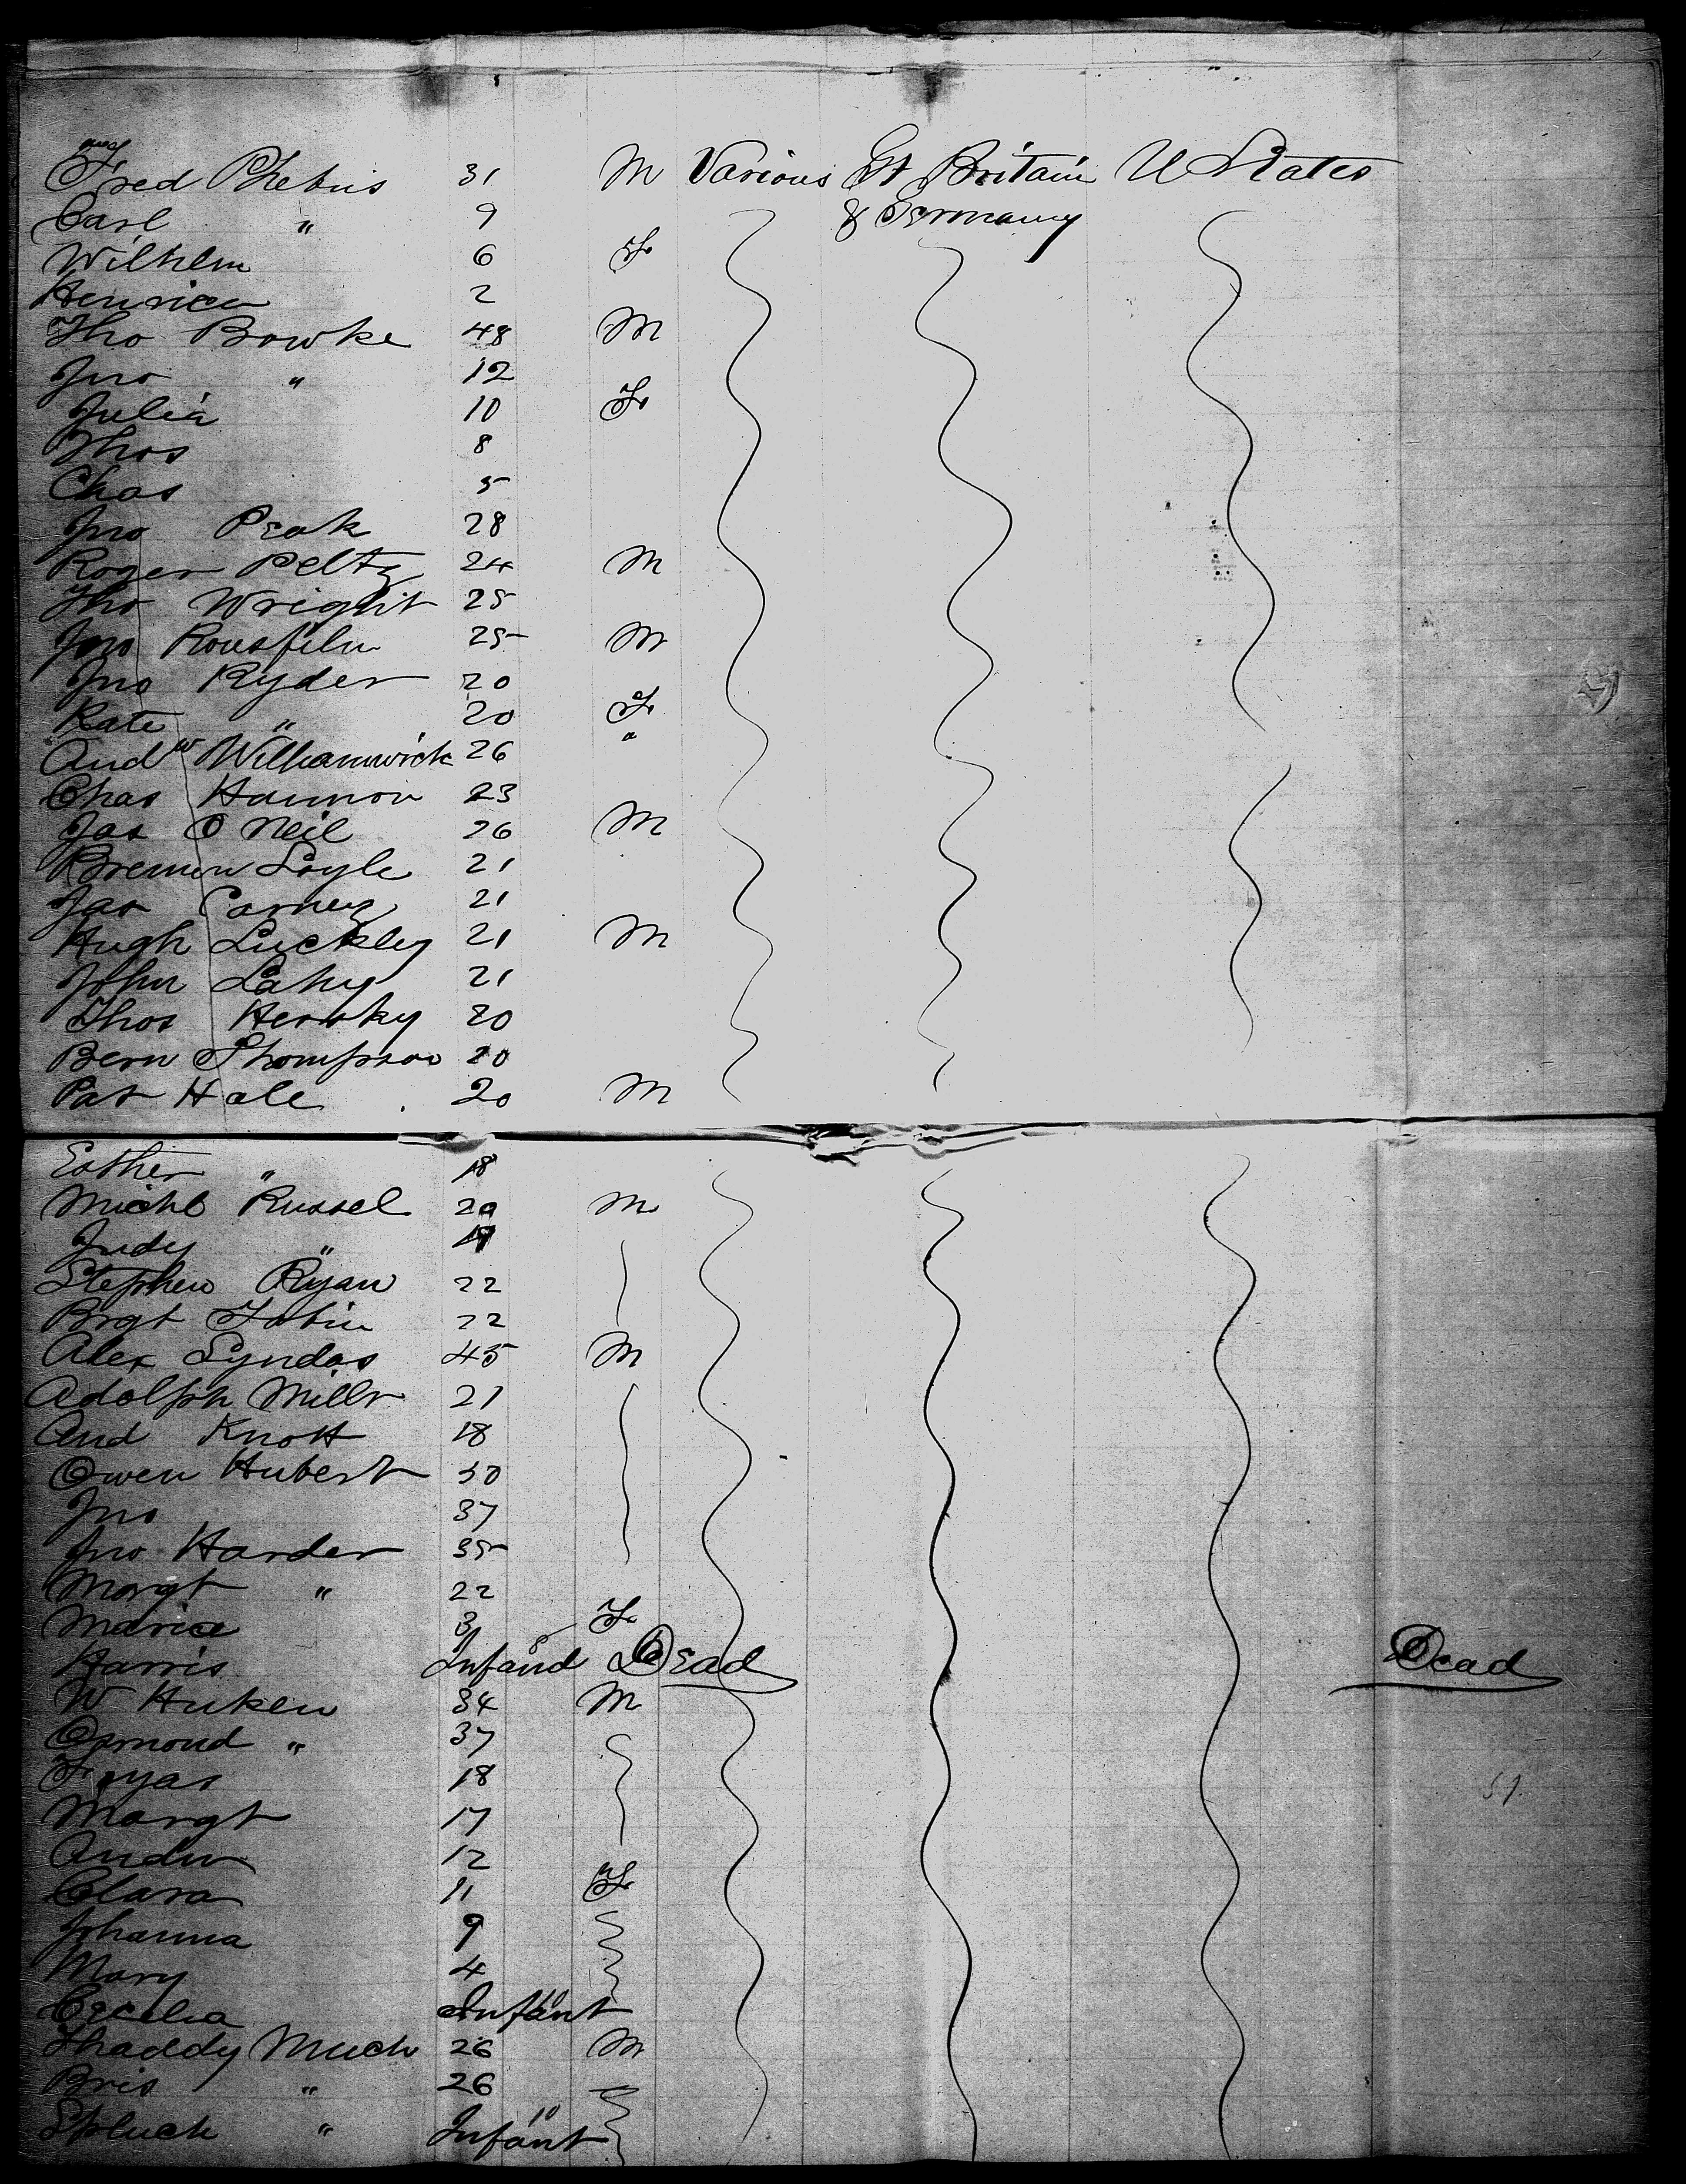 Fred Phebus 31 M Various Gt Britain U States
Carl " 9 & Germany
Wilhelm 6 F
Henrica 2
Tho Bowke 48 M
Jno " 12
Julia 10 F
Thos 8
Chas 5
Jno Peak 28
Roger Peltz 24 M
Tho Wright 25
Jno Rousfiln 25 M
Jno Ryder 20
Kate " 20 F
Andw Williamwick 26 "
Chas Hannon 23
Jas O Neil 26 M
Bremen Loyle 21
Jas Carney 21
Hugh Luckley 21 M
John Lahy 21
Thos Hersky 20
Bern Thompson 20
Pat Hale 20 M
Esther " 18
Michl Russel 20 M
Judy " 19
Stephen Ryan 22
Brgt Tobin 22
Alex Lyndas 45 M
Adolph Millr 21
And Knott 18
Owen Hubert 30
Jno 37
Jno Harder 35
Margt " 22
Maria 3 F
Harris Infand 8 Dead Dead
W Huken 34 M
Osmond " 37
18
Margt 17
Andw 12
Clara 11 F
Johanna 9
Mary 4
Cecelia Infant 10
Thaddy Much 26 M
Bris " 26
" Infant 10